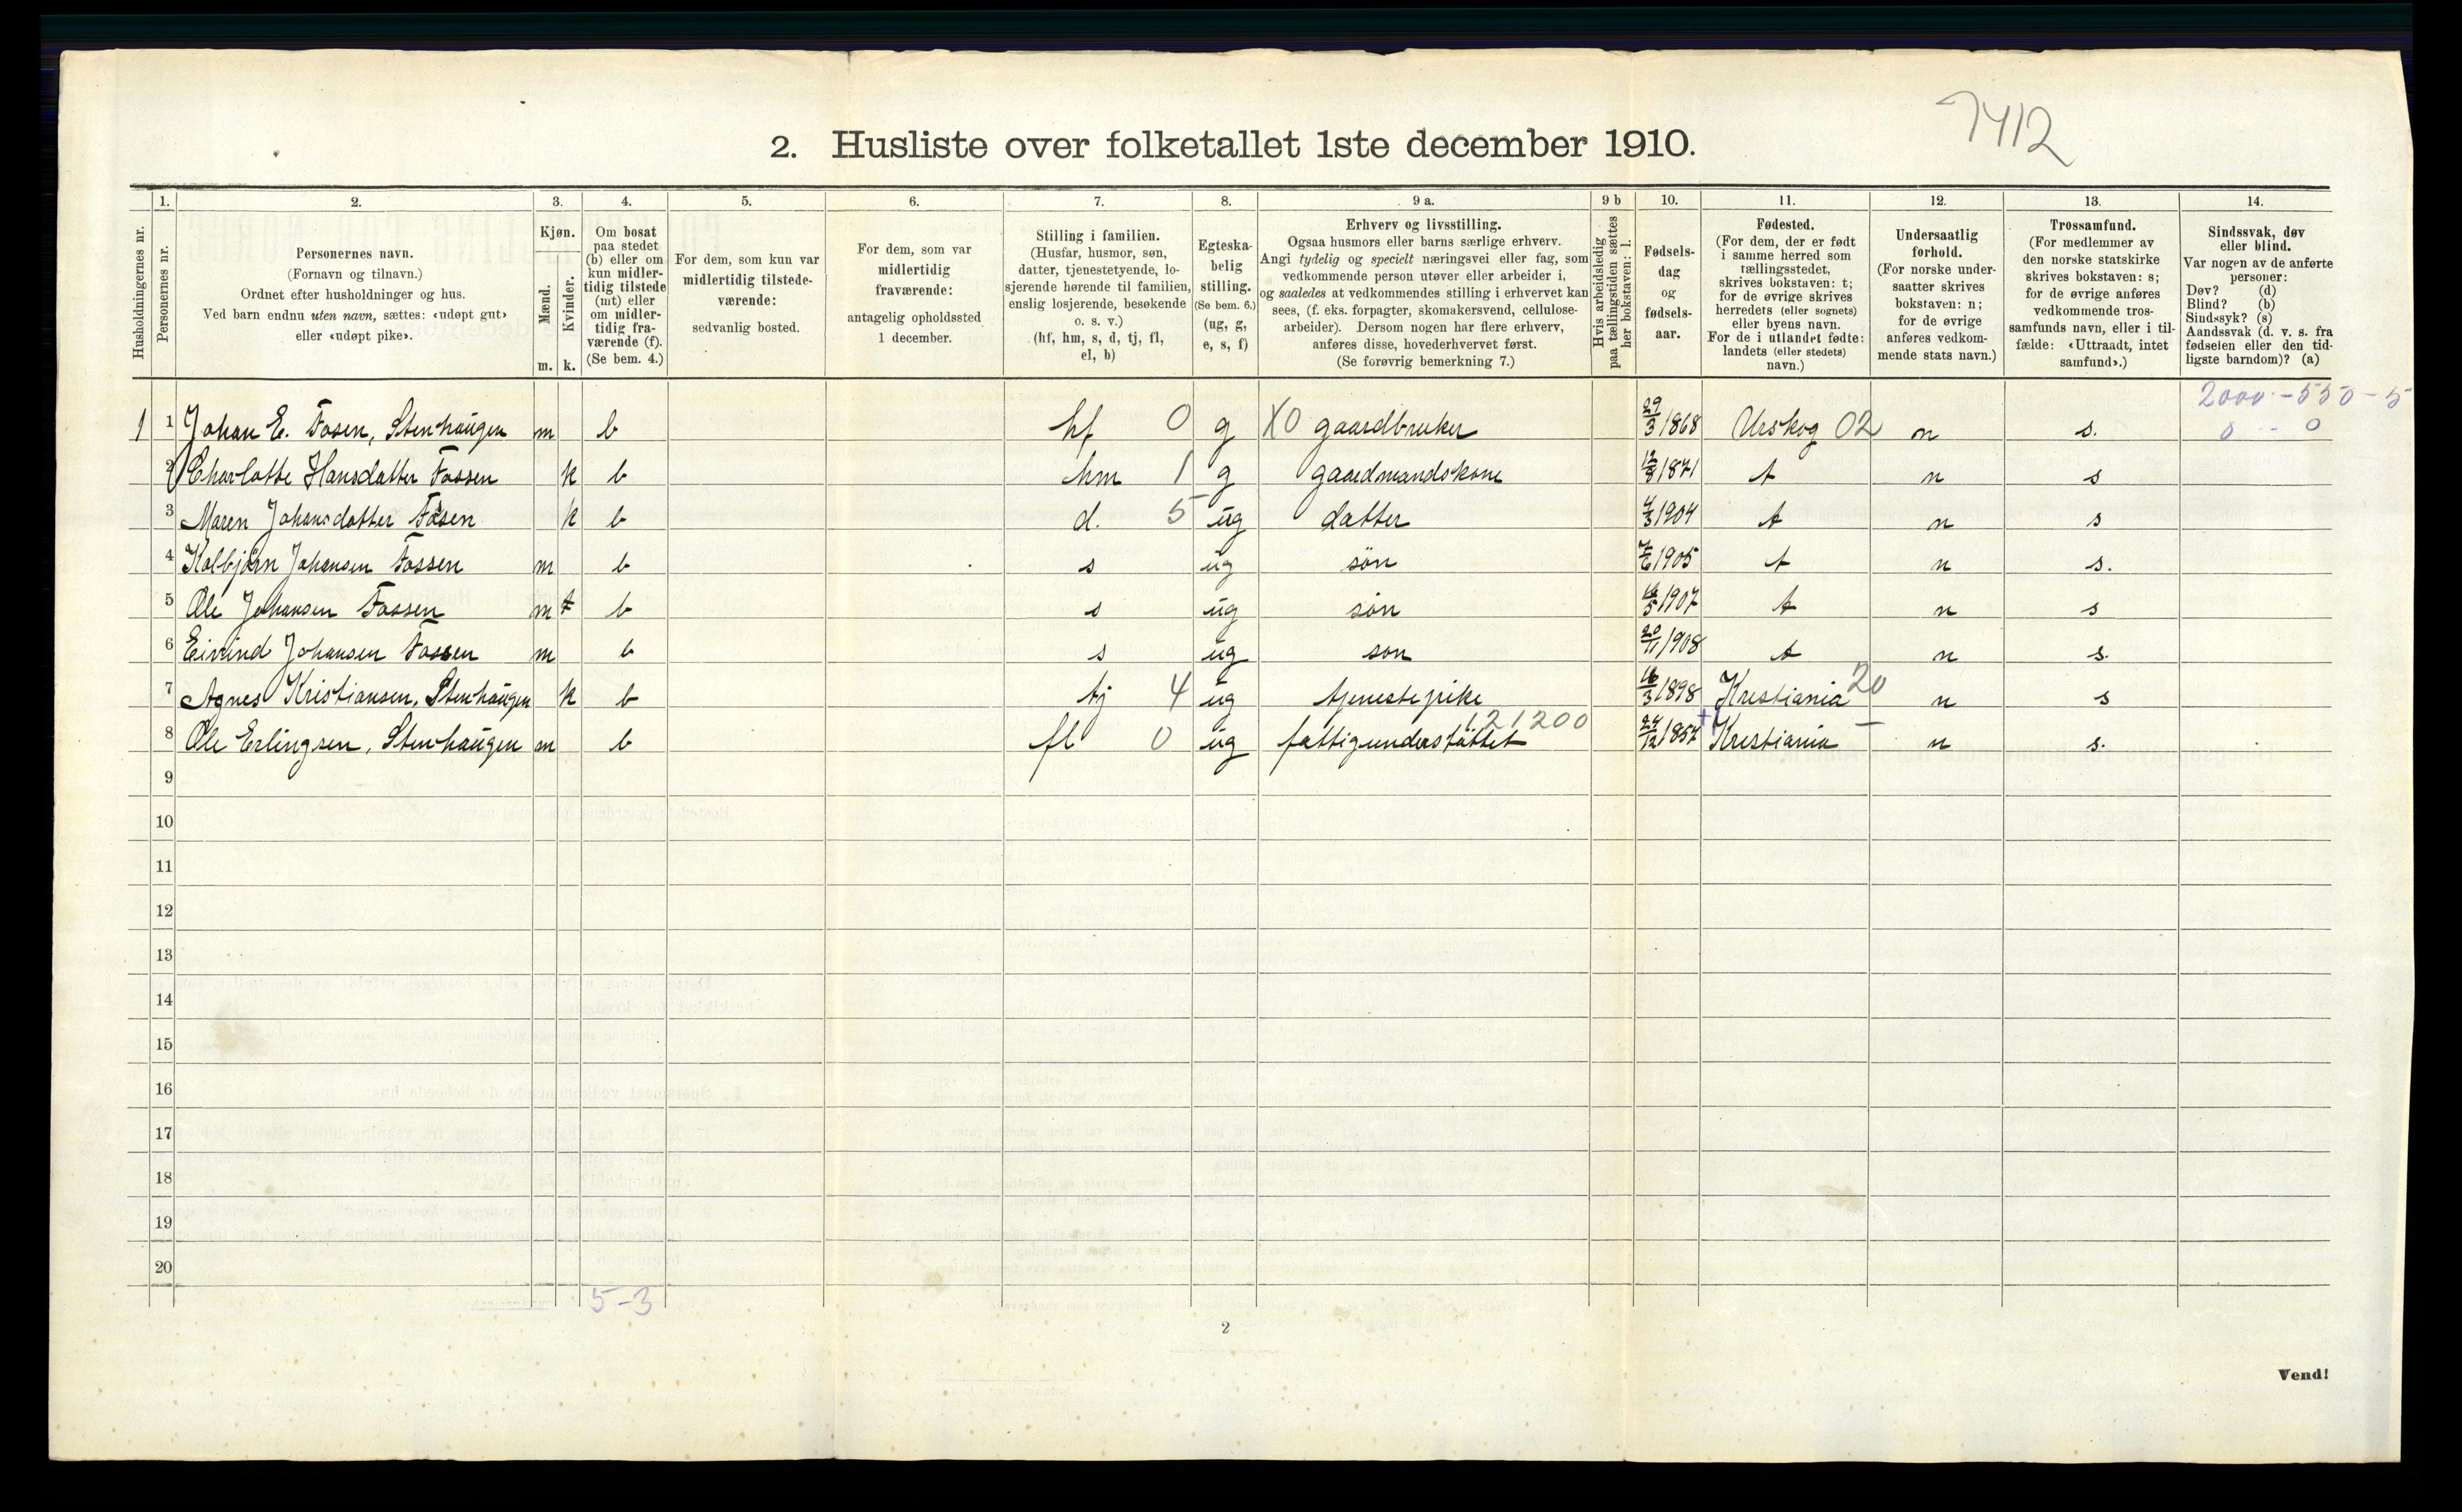 7412
2. Husliste over folketallet 1ste december 1910.
Husholdningernes nr.
1.
Personernes nr.
2.
Personernes navn.
(Fornavn og tilnavn.)
Ordnet efter husholdninger og hus.
Ved barn endnu uten navn, sættes: «udøpt gut»
eller «udøpt pike».
3.
Kjøn.
Mænd.
Kvinder.
m. k.
4.
Om bosat
paa stedet
(b) eller om
kun midler-
tidig tilstede
(mt) eller
om midler-
tidig fra-
værende (f).
(Se bem. 4.)
5.
For dem, som kun var
midlertidig tilstede-
værende:
sedvanlig bosted.
6.
For dem, som var
midlertidig
fraværende:
antagelig opholdssted
1 december.
7.
Stilling i familien.
(Husfar, husmor, søn,
datter, tjenestetyende, lo-
sjerende hørende til familien,
enslig losjerende, besøkende
o. s. v.)
(hf, hm, s, d, tj, fl,
el, b)
8.
Egteska-
belig
stilling.
(Se bem. 6.)
(ug, g,
e, s, f)
9 a.
Erhverv og livsstilling.
Ogsaa husmors eller barns særlige erhverv.
Angi tydelig og specielt næringsvei eller fag, som
vedkommende person utøver eller arbeider i,
og saaledes at vedkommendes stilling i erhvervet kan
sees, (f. eks. forpagter, skomakersvend, cellulose-
arbeider). Dersom nogen har flere erhverv,
anføres disse, hovederhvervet først.
(Se forøvrig bemerkning 7.)
9 b
Hvis arbeidsledig
paa tællingstiden sættes
her bokstaven: l.
10.
Fødsels-
dag
og
fødsels-
aar.
11.
Fødested.
(For dem, der er født
i samme herred som
tællingsstedet,
skrives bokstaven: t;
for de øvrige skrives
herredets (eller sognets)
eller byens navn.
For de i utlandet fødte:
landets (eller stedets)
navn.)
12.
Undersaatlig
forhold.
(For norske under-
saatter skrives
bokstaven: n;
for de øvrige
anføres vedkom-
mende stats navn.)
13.
Trossamfund.
(For medlemmer av
den norske statskirke
skrives bokstaven: s;
for de øvrige anføres
vedkommende tros-
samfunds navn, eller i til-
fælde: «Uttraadt, intet
samfund».)
14.
Sindssvak, døv
eller blind.
Var nogen av de anførte
personer:
Døv? (d)
Blind? (b)
Sindssyk? (s)
Aandssvak (d. v. s. fra
fødselen eller den tid-
ligste barndom)? (a)
2000-550-5
1 1 Johan E. Fosen, Stenhaugen m b hf 0 g X0 gaardbruker 29/3 1868 Urskog 02 n s. 0 - 0
2 Charlotte Hansdatter Fossen k b hm 1 g gaardmandskone 12/8 1871 t n s
3 Maren Johansdatter Fosen k b d. 5 ug datter 4/3 1904 t n s
4 Kolbjörn Johansen Fossen m b s ug søn 7/6 1905 t n s.
5 Ole Johansen Fossen m b s ug søn 16/5 1907 t n s
6 Eivind Johansen Fossen m b s ug søn 20/11 1908 t n s.
7 Agnes Kristiansen, Stenhaugen k b tj 4 ug tjenestepike 16/3 1898 Kristiania 20 n s
8 Ole Erlingsen, Stenhaugen m b fl 0 ug fattigunderstøttet 121200 24/12 1857 Kristiania – n s.
9
10
11
12
13
14
15
16
17
18
19
20
5-3
2
Vend!